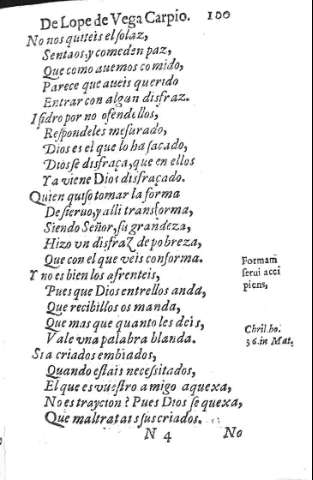 De Lope de Vega Carpio. 100
No nos quiteis el solaz,
Sentaos, y comed en paz,
Que como auemos comido,
Parece que aueis querido
Entrar con algun disfraz.
Isidro por no ofendellos,
Respondeles mesurado,
Dios es el que lo ha sacado,
Dios se disfraça, que en ellos
Ya viene Dios disfraçado.
Quien quiso tomar la forma
De sieruo, y alli transforma,
Siendo Señor, su grandeza,
Hizo vn disfraz de pobreza,
Que con el que veis conforma.
Formam
serui acci
piens,
Y no es bien los afrenteis,
Pues que Dios entrellos anda,
Que recibillos os manda,
Que mas que quanto les deis,
Vale vna palabra blanda.
Chris. ho.
36. in Mat.
Si a criados embiados,
Quando estais necessitados,
El que es vuestro amigo aquexa,
No es trayciòn? Pues Dios se quexa,
Que maltratais sus criados.
N 4 No